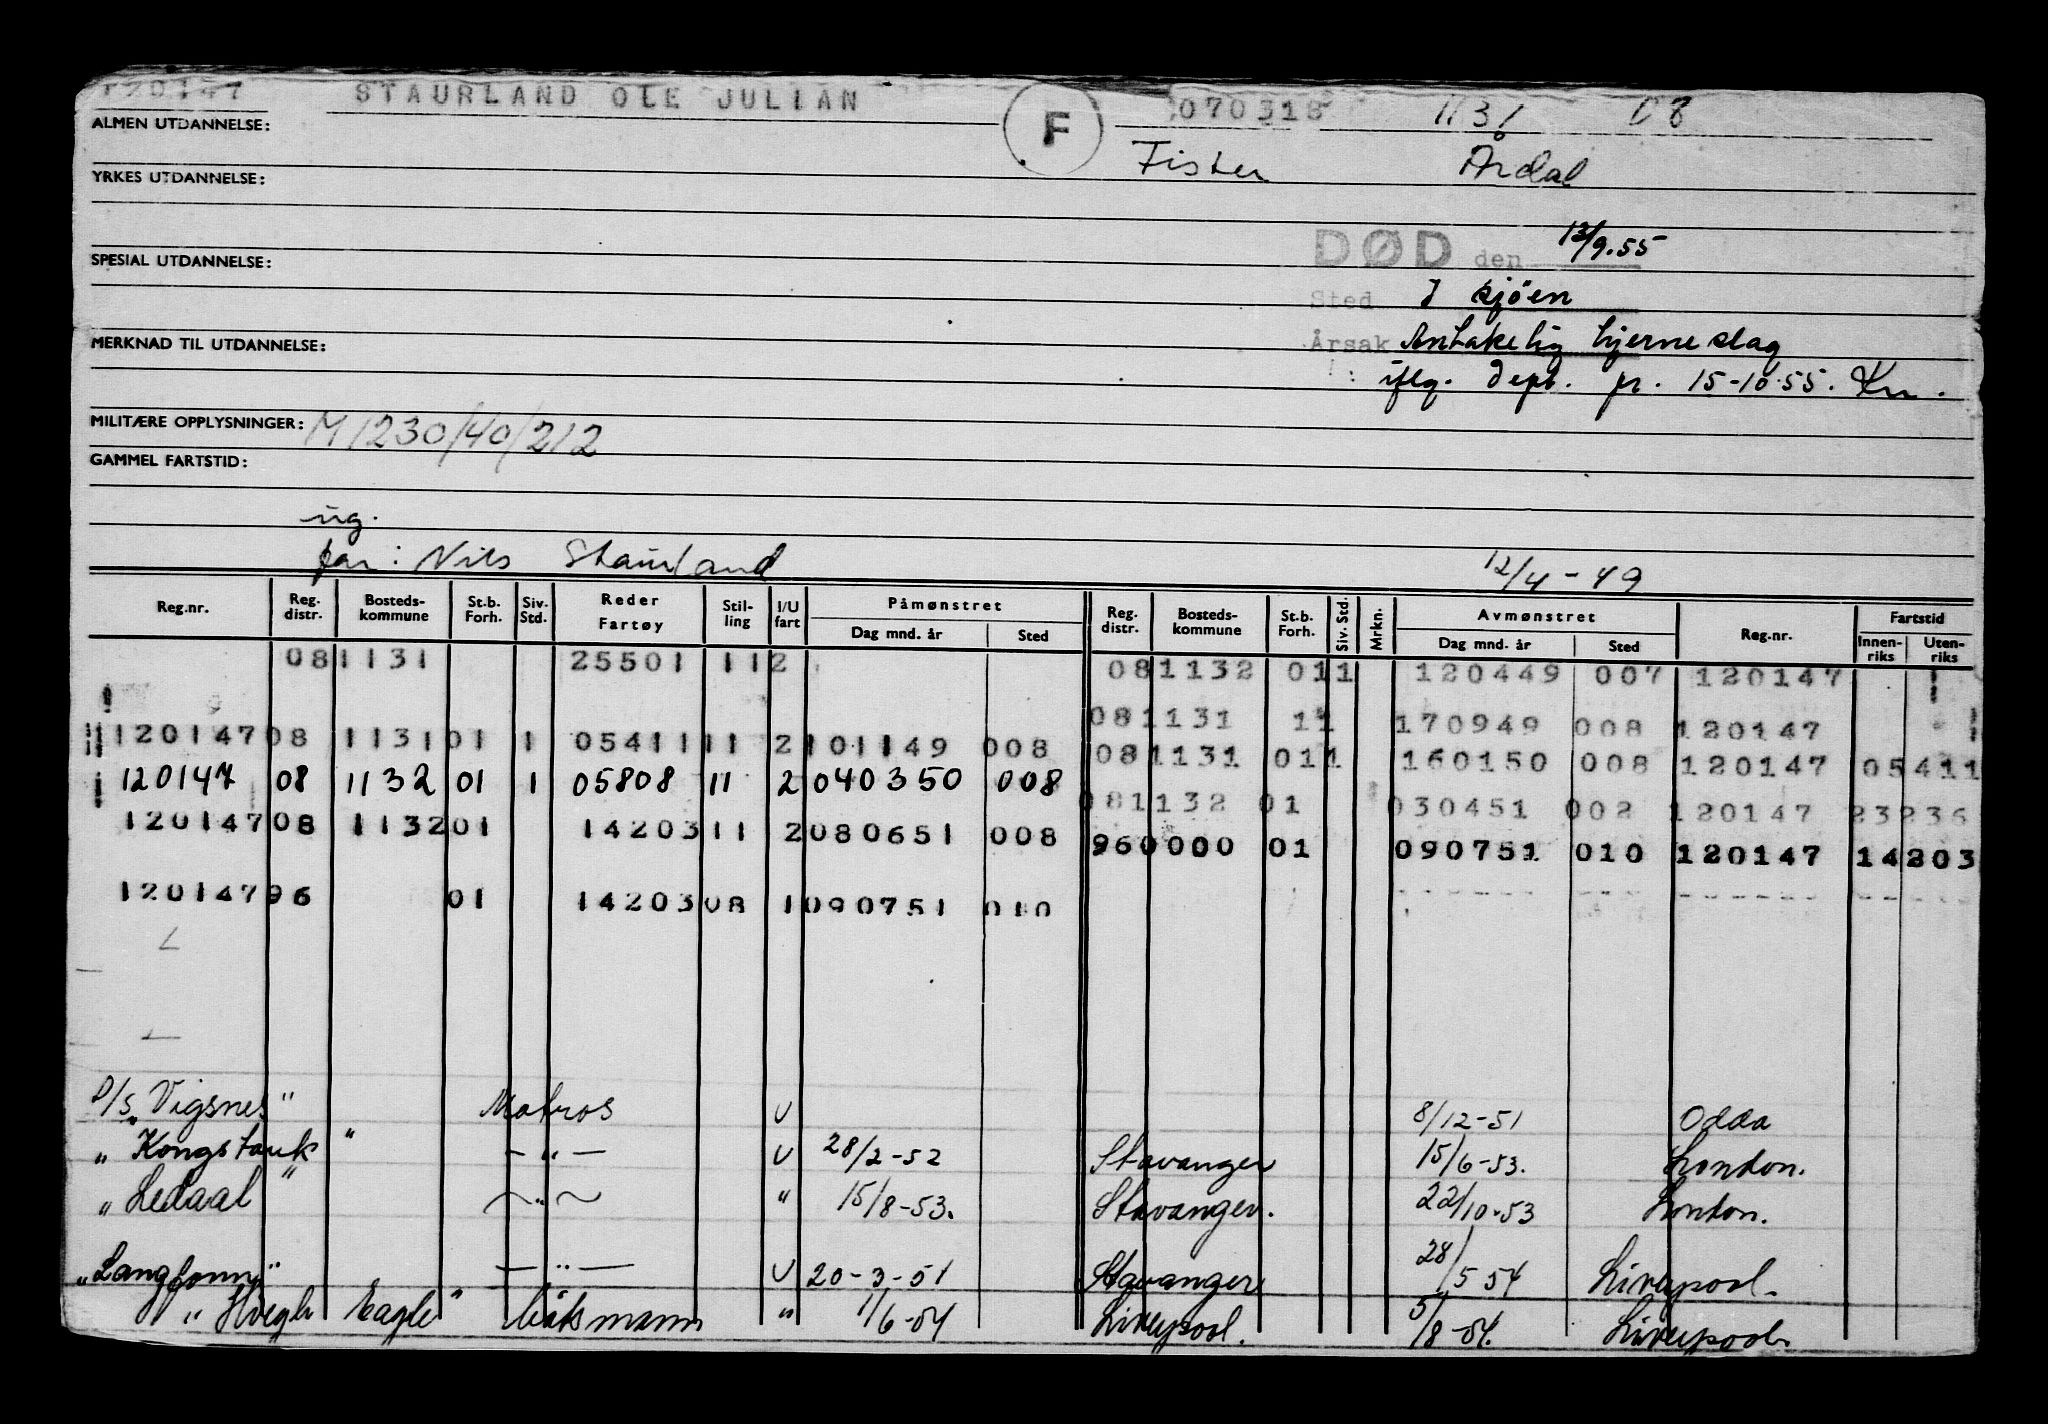 120147 STAURLAND OLE JULIAN F 070318 1131 08
ALMEN UTDANNELSE:
Fister Årdal
YRKES UTDANNELSE:
DØD den 12/9.55
SPESIAL UTDANNELSE:
Sted I sjöen
MERKNAD TIL UTDANNELSE:
Årsak Antakelig hjerneslag
iflg. dept. pr. 15-10-55. Kn.
MILITÆRE OPPLYSNINGER: M/230/40/212
GAMMEL FARTSTID:
ug.
far: Nils Staurland 12/4-49
Reg.nr. Reg. distr. Bosteds-kommune St.b. Forh. Siv. Std. Reder Fartøy Stil-ling I/U fart Påmønstret Dag mnd. år Sted Reg. distr. Bosteds-kommune St.b. Forh. Siv. Std. Mrkn. Avmønstret Dag mnd. år Sted Reg.nr. Fartstid Innen-riks Uten-riks
081131 25501 112 081132 011 120449 007 120147
081131 11 170949 008 120147
120147 08 1131 01 1 05411 11 2 101149 008 081131 011 160150 008 120147 05411
120147 08 1132 01 1 05808 11 2 040350 008 081132 01 030451 002 120147 23236
120147 08 1132 01 14203 11 2 080651 008 960000 01 090751 010 120147 14203
120147 96 01 14203 08 1 090751 010
D/S "Vigsnes" Matros U 8/12-51 Odda
" Kongstank " - " - U 28/2-52 Stavanger 15/6-53. London.
" Ledaal " ~ " ~ " 15/8-53. Stavanger. 22/10-53 London.
"Langfonn" - " - U 20-3-51 Stavanger 28/5 54 Liverpool.
" Høegh Eagle" Båtsmann " 1/6-54 Liverpool. 5/8-54. Liverpool.